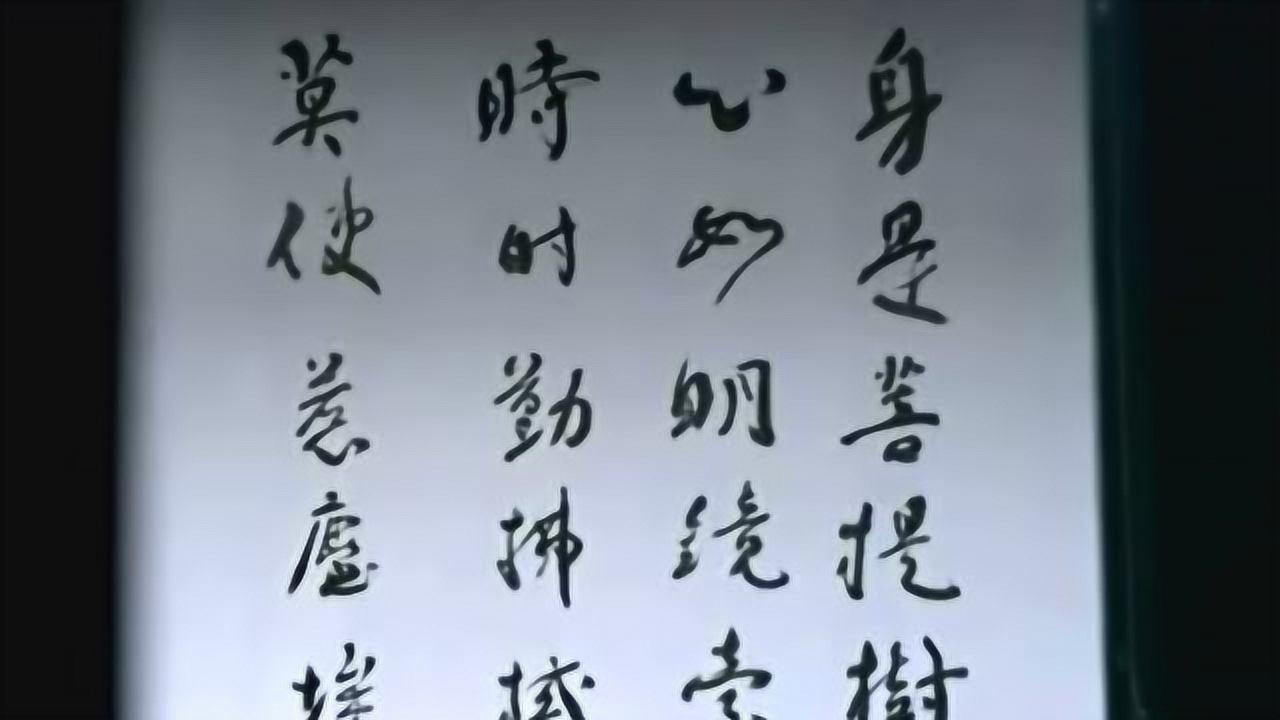 身是菩提樹
心如明鏡臺
時时勤拂拭
莫使惹塵埃